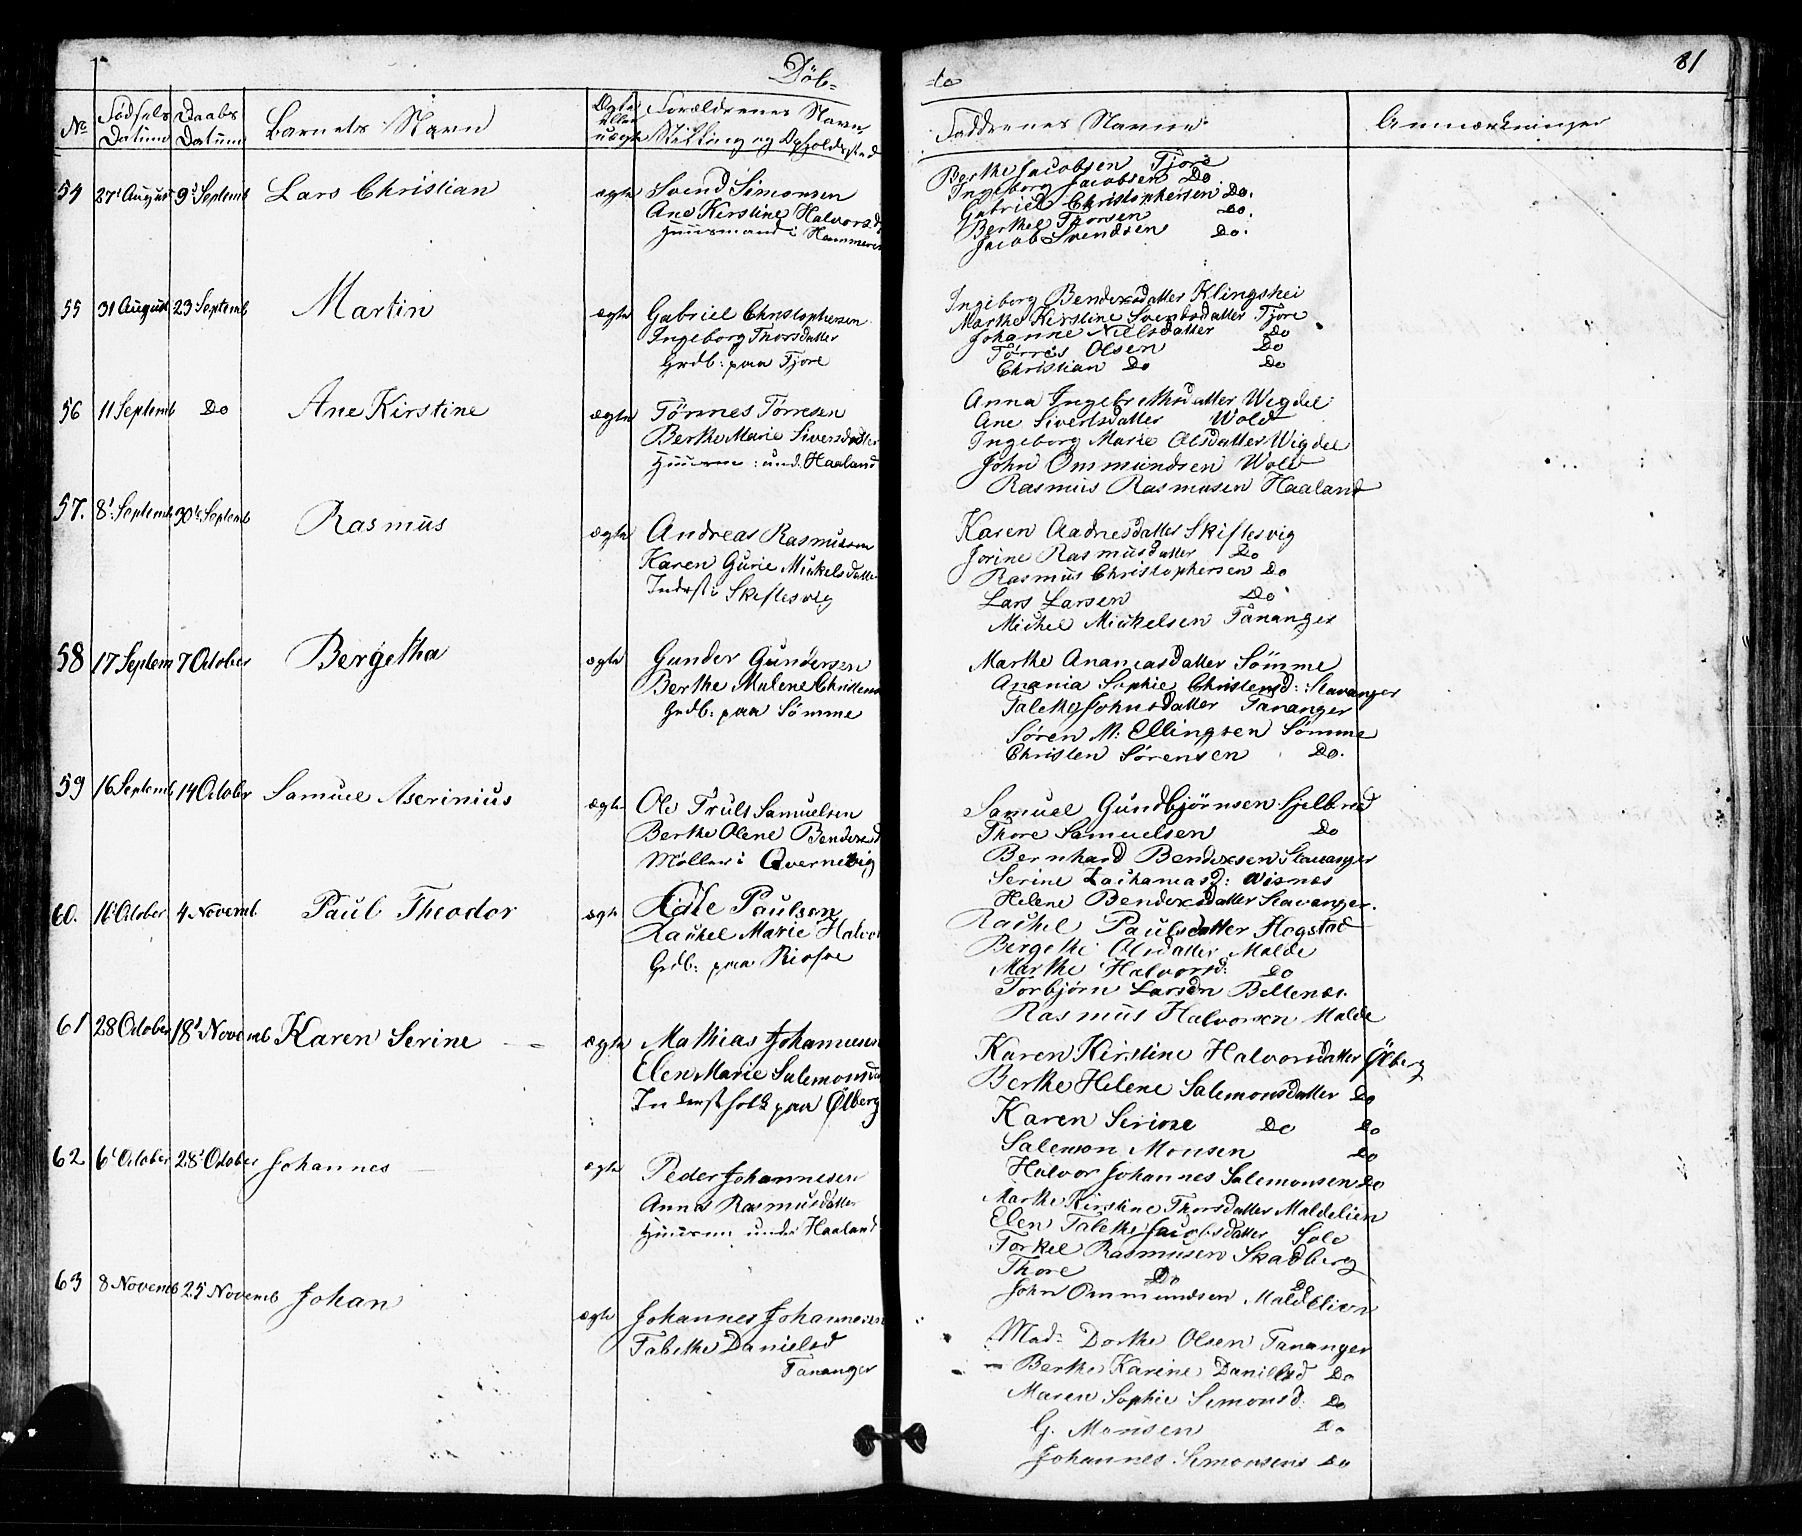 Döb-
te
81
No
Fødsels Datum
Daabs Datum
Barnets Navn
Ægte eller uægte
Forældrenes Navn, Stilling og Opholdssted
Faddrenes Navne
Anmærkninger
54 27 August 9 Septemb Lars Christian ægte
Svend Simonsen
Ane Kirstine Halvorsd
Huusmand i Hammeren
Berthe Jacobsen Tjore
Ingeborg Jacobsen Do
Gabriel Christophersen Do.
Berthel Thorsen Do.
Jacob Svendsen Do.
55 31 August 23 Septemb Martin ægte
Gabriel Christophersen
Ingeborg Thorsdatter
Grdb: paa Tjore
Ingeborg Bendixsdatter Klingshei
Marthe Kirstine Svendsdatter Tjore
Johanne Nielsdatter Do
Törres Olsen Do
Christian Do Do
56 11 Septemb Do Ane Kirstine ægte
Tönnes Törresen
Berthe Marie Siversdatter
Huusm: und. Haaland
Anna Ingebrethsdatter Wigdel
Ane Sivertsdatter Wold
Ingeborg Marie Olsdatter Wigdel
John Ommundsen Wold
Rasmus Rasmusen Haaland
57. 8 Septemb 30 Septemb Rasmus ægte
Andreas Rasmussen
Karen Gurie Mickelsdatter
Inderst i Skiftesvig
Karen Aadnesdatter Skiftesvig
Jorine Rasmusdatter Do
Rasmus Christophersen Do
Lars Larsen Do
Michel Mickelsen Tananger
58 17 Septem 7 October Bergetha ægte
Gunder Gundersen
Berthe Malene Christens
Grdb: paa Sömme
Marthe Ananiasdatter Sömme
Anania Sophie Christensd: Stavanger
Talette Johnsdatter Tananger
Søren M: Ellingsen Sömme
Christen Sørensen Do.
59 16 Septemb 14 October Samuel Aserinius ægte
Ole Truls Samuelsen
Berthe Olene Bendixsd
Møller i Qvernevig
Samuel Gundbjörnsen
Thore Samuelsen Do
Bernhard Bendixsen Stavanger
Serine Zachariasd: Wisnæs
Helene Bendixsdatter Stavanger.
60. 16 October 4 Novemb. Paul Theodor ægte
Paulsen
Rachel Marie Halvor
Grdb: paa
Rachel Paulsdatter Hogstad
Bergethe Olsdatter Malde
Marthe Halvorsd: Do
Torbjörn Larsen
Rasmus Halvorsen Malde
61 28 October 18 Novemb Karen Serine ægte
Mathias Johannesen
Elen Marie Salemonsd
Inderstfolk paa Ølberg
Karen Kirstine Halvorsdatter Ølberg
Berthe Helene Salemonsdatter Do
Karen Serine Do Do
Salemon Monsen Do
Halvor Johannes Salemonsen Do
62 6 October 28 October Johannes ægte
Peder Johannesen
Anna Rasmusdatter
Huusm under Haaland
Marthe Kirstine Thorsdatter Maldelien
Elen Talethe Jacobsdatter Sole
Torkel Rasmusen Skadberg
Thore Do Do
John Ommundsen Maldelien
63 8 Novemb 25 Novemb Johan ægte
Johannes Johannesen
Tabethe Danielsd
Tananger
Mad: Dorthe Olsen Tananger
- Berthe Karine Danielsd Do
Maren Sophie Simonsd: Do
G. Monsen Do
Johannes Simonsens Do